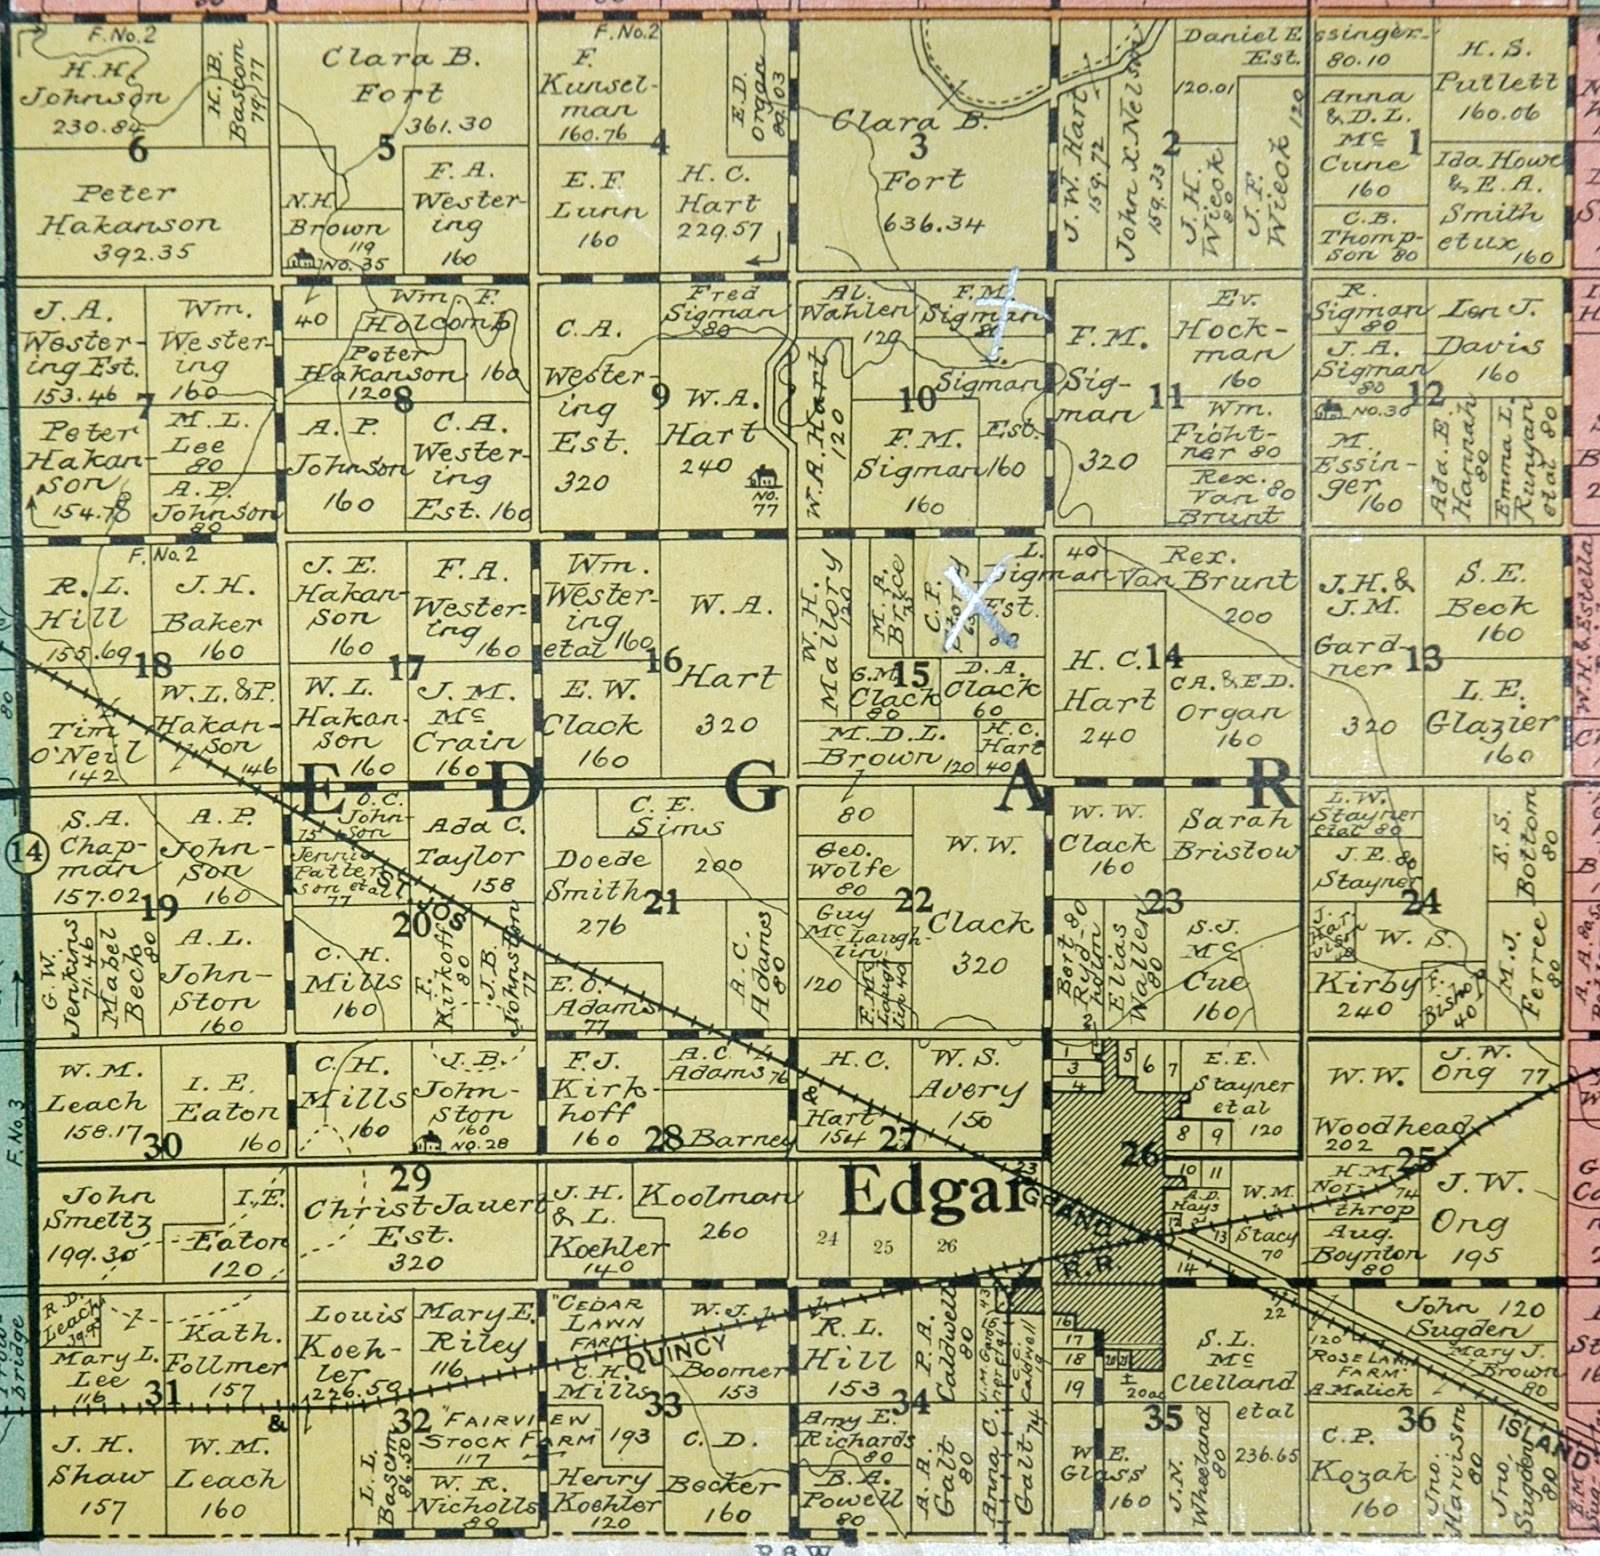 F. No. 2
H. H.
Johnson
230.84
6
H. B.
Bascom
79.77
Clara B.
Fort
361.30
5
F. No. 2
F.
Kunsel-
man
160.76
4
E. D.
Organ
Clara B.
3
Fort
636.34
J. W. Hart
159.72
John X. Nelson
159.33
Daniel Essinger
Est.
80.10
120.01
2
J. H.
Wieck
80
J. F.
Wieck
120
Anna
& D. L.
Mc
Cune
160
1
H. S.
Putlett
160.06
Peter
Hakanson
392.35
N. H.
Brown
119
No. 35
F. A.
Wester-
ing
160
E. F.
Lunn
160
H. C.
Hart
229.57
C. B.
Thomp-
son 80
Ida Howe
& E. A.
Smith
et ux
160
J. A.
Wester-
ing Est.
153.46
7
Wm.
Wester-
ing
160
40
Wm. F.
Holcomb
160
Peter
Hakanson
120
8
C. A.
Wester-
ing
Est.
320
9
Fred
Sigman
80
W. A.
Hart
240
No.
77
Al.
Wahlen
120
F. M.
Sigman
80
W. A. Hart
120
10
L.
Sigman
Est.
160
F. M.
Sigman
160
F. M.
Sig-
man
320
11
Ev.
Hock-
man
160
R.
Sigman
80
J. A.
Sigman
80
Len J.
Davis
160
12
Peter
Hakan-
son
154.78
M. L.
Lee
80
A. P.
Johnson
80
A. P.
Johnson
160
C. A.
Wester-
ing
Est. 160
Wm.
Ficht-
ner 80
Rex.
Van 80
Brunt
No. 30
M.
Essin-
ger
160
Ada E.
Hannah
80
Emma L.
Runyan
et al 80
F. No. 2
R. L.
Hill
155.69
18
J. H.
Baker
160
J. E.
Hakan-
son
160
17
F. A.
Wester-
ing
160
Wm.
Wester-
ing
et al 160
16
W. A.
Hart
320
W. H.
Mallory
120
M. A.
Brice
C. F.
L.
Sigman
Est.
80
40
Rex.
Van Brunt
200
J. H. &
J. M.
Gard-
ner
320
13
S. E.
Beck
160
Tim
O'Neil
142
W. L. & P.
Hakan-
son
146
W. L.
Hakan-
son
160
J. M.
Mc
Crain
160
E. W.
Clack
160
G. M.
Clack
80
15
D. A.
Clack
60
M. D. L.
Brown
120
H. C.
Hart
40
H. C.
Hart
240
14
C A. & E D.
Organ
160
L. E.
Glazier
160
E D G A R
14
S. A.
Chap-
man
157.02
19
A. P.
John-
son
160
O. C.
John-
son
Jennie
Patter-
son et al
77
Ada C.
Taylor
158
20
ST JOS.
C. E.
Sims
200
Doede
Smith
276
21
80
Geo.
Wolfe
80
22
W. W.
Clack
320
W. W.
Clack
160
Sarah
Bristow
23
L. W.
Stayner
et al 80
J. E. 80
Stayner
24
E. S.
Bottom
80
G. W.
Jenkins
71.46
Mabel
Beck
80
A. L.
John-
ston
160
C. H.
Mills
160
F.
Kirkoff
80
J. B.
Johnston
77
E. O.
Adams
77
A. C.
Adams
80
Guy
Mc Laugh-
lin
120
Bert
Ryd-
holm
80
Elias
Wallen
80
S. J.
Mc
Cue
160
W. S.
Kirby
240
F.
Bishop
40
M. J.
Ferree
80
W. M.
Leach
158.17
30
I. E.
Eaton
160
C. H.
Mills
160
J. B.
John-
ston
160
No. 28
F. J.
Kirk-
hoff
160
28
A. C.
Adams
76
Barney
& R.
H. C.
Hart
154
27
W. S.
Avery
150
1
3
4
5
6
7
26
E. E.
Stayner
et al
120
8
9
W. W.
Woodhead
202
25
J. W.
Ong
77
John
Smeltz
199.30
I. E.
Eaton
120
29
Christ Jauert
Est.
320
J. H.
& L.
Koehler
140
Koolman
260
Edgar
GRAND
23
24
25
26
R. R.
10
11
A. D.
Hays
13
14
W. M.
Stacy
70
H. M.
Nor-
throp
74
Aug.
Boynton
80
J. W.
Ong
195
R. D.
Leach
39.90
Mary L.
Lee
116
31
Kath.
Follmer
157
&
Louis
Koeh-
ler
226.50
Mary E.
Riley
116
32
"CEDAR
LAWN
FARM"
C. H.
Mills
193
QUINCY
33
W. J.
Boomer
153
R. L.
Hill
153
34
P. A.
Caldwell
80
C. C.
Caldwell
16
17
18
19
20
22
S. L.
Mc
Clelland
et al
236.65
35
120
ROSE LAWN
FARM
A. Malick
36
John 120
Sugden
Mary J.
Brown
80
ISLAND
J. H.
Shaw
157
W. M.
Leach
160
L. L.
Bascom
86.50
"FAIRVIEW
STOCK FARM"
117
W. R.
Nicholls
80
Henry
Koehler
120
C. D.
Becker
160
Amy E.
Richards
80
B. A.
Powell
80
A. A.
Galt
80
Anna C.
Galt
74
W. E.
Glass
160
J. N.
Wheeland
80
C. P.
Kozak
160
Jno.
Harvison
80
Jno.
Sugden
80
F. No. 3
bridge
W. H. & Estella
R 8 W